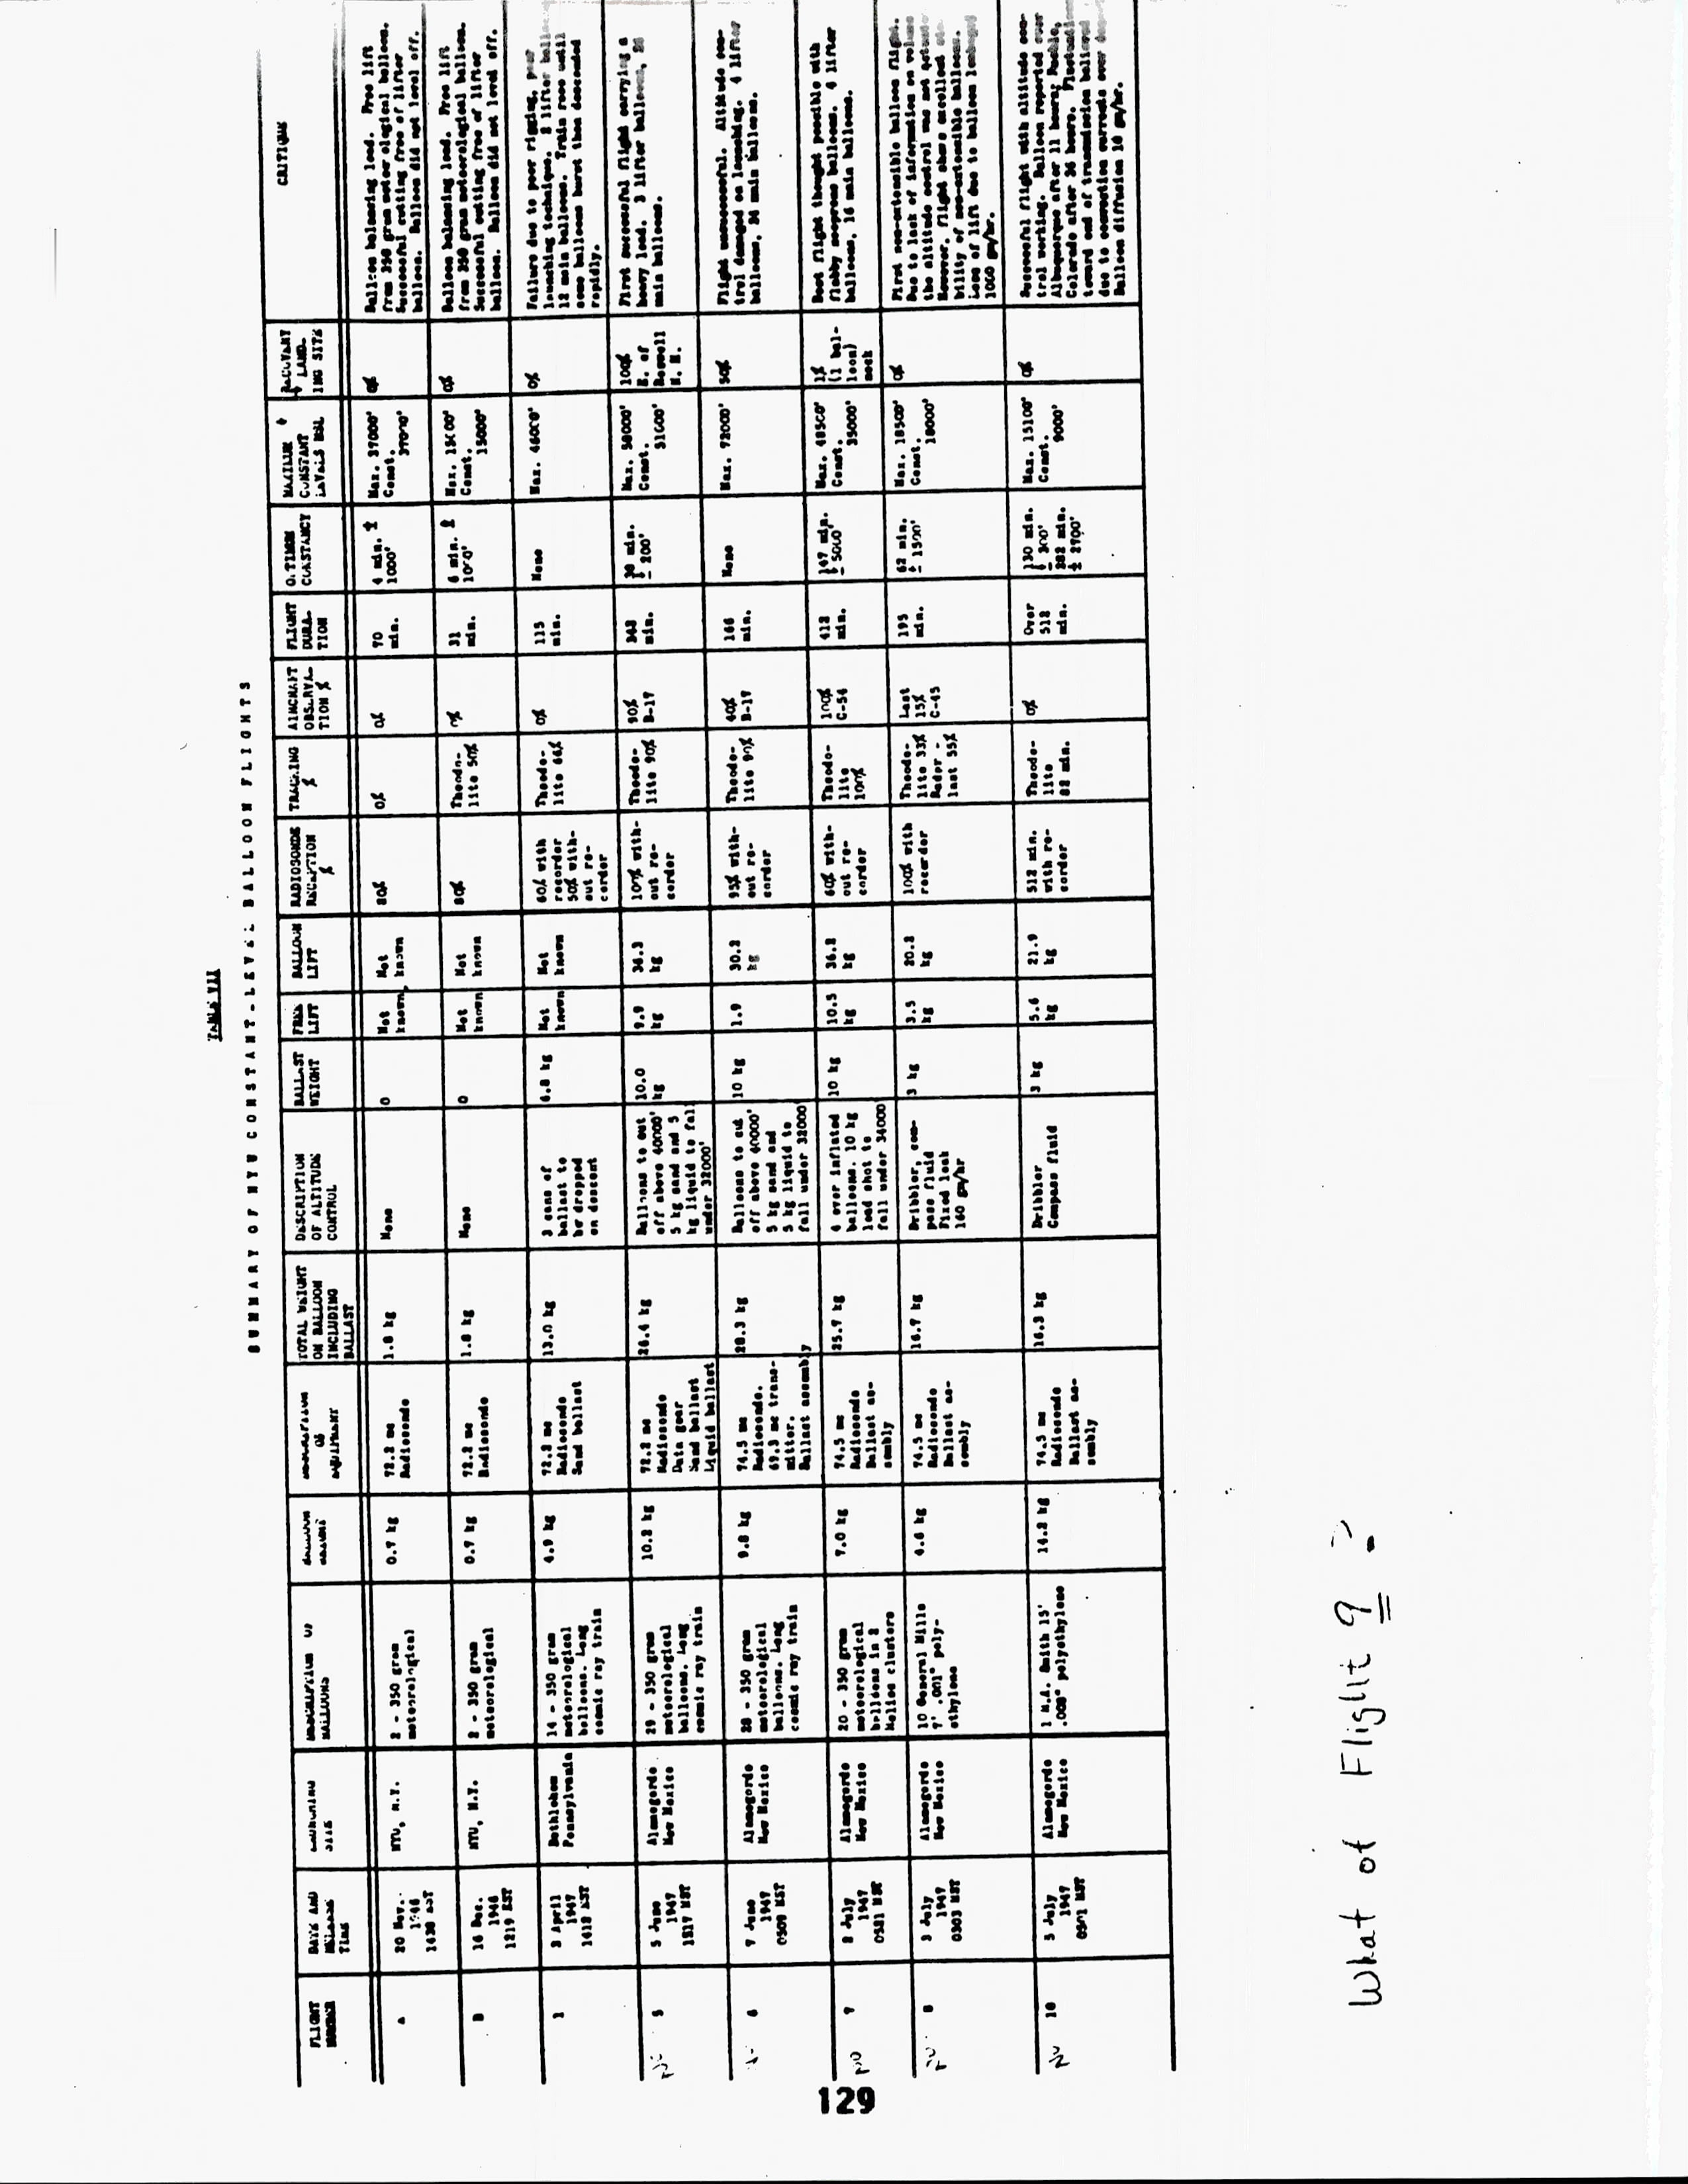 TABLE VII
SUMMARY OF NYU CONSTANT-LEVEL BALLOON FLIGHTS
FLIGHT
NUMBER
DATE AND
RELEASE
TIME
LAUNCHING
SITE
DESCRIPTION OF
BALLOONS
BALLOON
WEIGHT
DESCRIPTION
OF
EQUIPMENT
TOTAL WEIGHT
ON BALLOON
INCLUDING
BALLAST
DESCRIPTION
OF ALTITUDE
CONTROL
BALLAST
WEIGHT
FREE
LIFT
BALLOON
LIFT
RADIOSONDE
RECEPTION
%
TRACKING
%
AIRCRAFT
OBSERVA-
TION %
FLIGHT
DURA-
TION
CONSTANCY
MAXIMUM +
CONSTANT
LEVELS MSL
LAND-
ING SITE
CRITIQUE
A
20 Nov.
1946
1430 EST
NYU, N.Y.
2 - 350 gram
meteorological
0.7 kg
72.2 mc
Radiosonde
1.8 kg
None
0
Not
known
Not
known
80%
0%
0%
70
min.
4 min. ±
1000'
Max. 37000'
Const.
37000'
0%
Balloon balancing load. Free lift
from 350 gram meteorological balloon.
Successful cutting free of lifter
balloon. Balloon did not level off.
B
16 Dec.
1946
1219 EST
NYU, N.Y.
2 - 350 gram
meteorological
0.7 kg
72.2 mc
Radiosonde
1.8 kg
None
0
Not
known
Not
known
80%
Theodo-
lite 50%
0%
31
min.
6 min. ±
1000'
Max. 15000'
Const.
15000'
0%
Balloon balancing load. Free lift
from 350 gram meteorological balloon.
Successful cutting free of lifter
balloon. Balloon did not level off.
1
3 April
1947
1412 EST
Bethlehem
Pennsylvania
14 - 350 gram
meteorological
balloons. Long
cosmic ray train
4.9 kg
72.2 mc
Radiosonde
Sand ballast
13.0 kg
3 cans of
ballast to
be dropped
on descent
6.8 kg
Not
known
Not
known
60% with
recorder
50% with-
out re-
corder
Theodo-
lite 66%
0%
115
min.
None
Max. 46000'
0%
Failure due to poor rigging, poor
launching technique. 2 lifter balloons
12 main balloons. Train rose until
some balloons burst then descended
rapidly.
5
5 June
1947
1517 MST
Alamogordo
New Mexico
29 - 350 gram
meteorological
balloons. Long
cosmic ray train
10.2 kg
72.2 mc
Radiosonde
Data gear
Sand ballast
Liquid ballast
26.4 kg
Balloons to cut
off above 40000'
5 kg sand and 5
kg liquid to fall
under 32000'
10.0
kg
9.9
kg
36.3
kg
100% with-
out re-
corder
Theodo-
lite 90%
90%
B-17
343
min.
30 min.
± 200'
Max. 58000'
Const.
51000'
100%
E. of
Roswell
N. M.
First successful flight carrying a
heavy load. 3 lifter balloons, 26
main balloons.
6
7 June
1947
0509 MST
Alamogordo
New Mexico
28 - 350 gram
meteorological
balloons. Long
cosmic ray train
9.8 kg
74.5 mc
Radiosonde.
69.3 mc trans-
mitter.
Ballast assembly
28.3 kg
Balloons to cut
off above 40000'
5 kg sand and
5 kg liquid to
fall under 32000'
10 kg
1.9
30.2
kg
95% with-
out re-
corder
Theodo-
lite 90%
40%
B-17
166
min.
None
Max. 72000'
50%
Flight unsuccessful. Altitude con-
trol damaged on launching. 4 lifter
balloons, 24 main balloons.
7
2 July
1947
0521 MST
Alamogordo
New Mexico
20 - 350 gram
meteorological
balloons in 2
Helios clusters
7.0 kg
74.5 mc
Radiosonde
Ballast as-
sembly
25.7 kg
4 over inflated
balloons. 10 kg
lead shot to
fall under 34000'
10 kg
10.5
kg
36.2
kg
60% with-
out re-
corder
Theodo-
lite
100%
100%
C-54
412
min.
147 min.
± 5000'
Max. 48500'
Const.
35000'
1%
(1 bal-
loon)
neck
Best flight thought possible with
flabby neoprene balloons. 4 lifter
balloons, 16 main balloons.
8
3 July
1947
0303 MST
Alamogordo
New Mexico
10 General Mills
7' .001" poly-
ethylene
4.6 kg
74.5 mc
Radiosonde
Ballast as-
sembly
16.7 kg
Dribbler, com-
pass fluid
Fixed leak
160 gm/hr
3 kg
3.5
kg
20.2
kg
100% with
recorder
Theodo-
lite 33%
Radar -
last 55%
Last
15%
C-45
195
min.
62 min.
± 1500'
Max. 18500'
Const.
18000'
0%
First non-extensible balloon flight.
Due to lack of information on volume
the altitude control was not
However, flight shows excellent sta-
bility of non-extensible balloons.
Loss of lift due to balloon leakage
1000 gm/hr.
10
5 July
1947
0501 MST
Alamogordo
New Mexico
1 H.A. Smith 15'
.008" polyethylene
14.2 kg
74.5 mc
Radiosonde
Ballast as-
sembly
16.3 kg
Dribbler
Compass fluid
3 kg
5.6
kg
21.9
kg
512 min.
with re-
corder
Theodo-
lite
82 min.
0%
Over
512
min.
130 min.
± 300'
282 min.
± 2700'
Max. 15100'
Const.
9000'
0%
Successful flight with altitude con-
trol working. Balloon reported over
Albuquerque after 11 hours; Pueblo,
Colorado after 36 hours.
toward end of transmission believed
due to convection currents over
Balloon diffusion 10 gm/hr.
129
What of Flight 9?